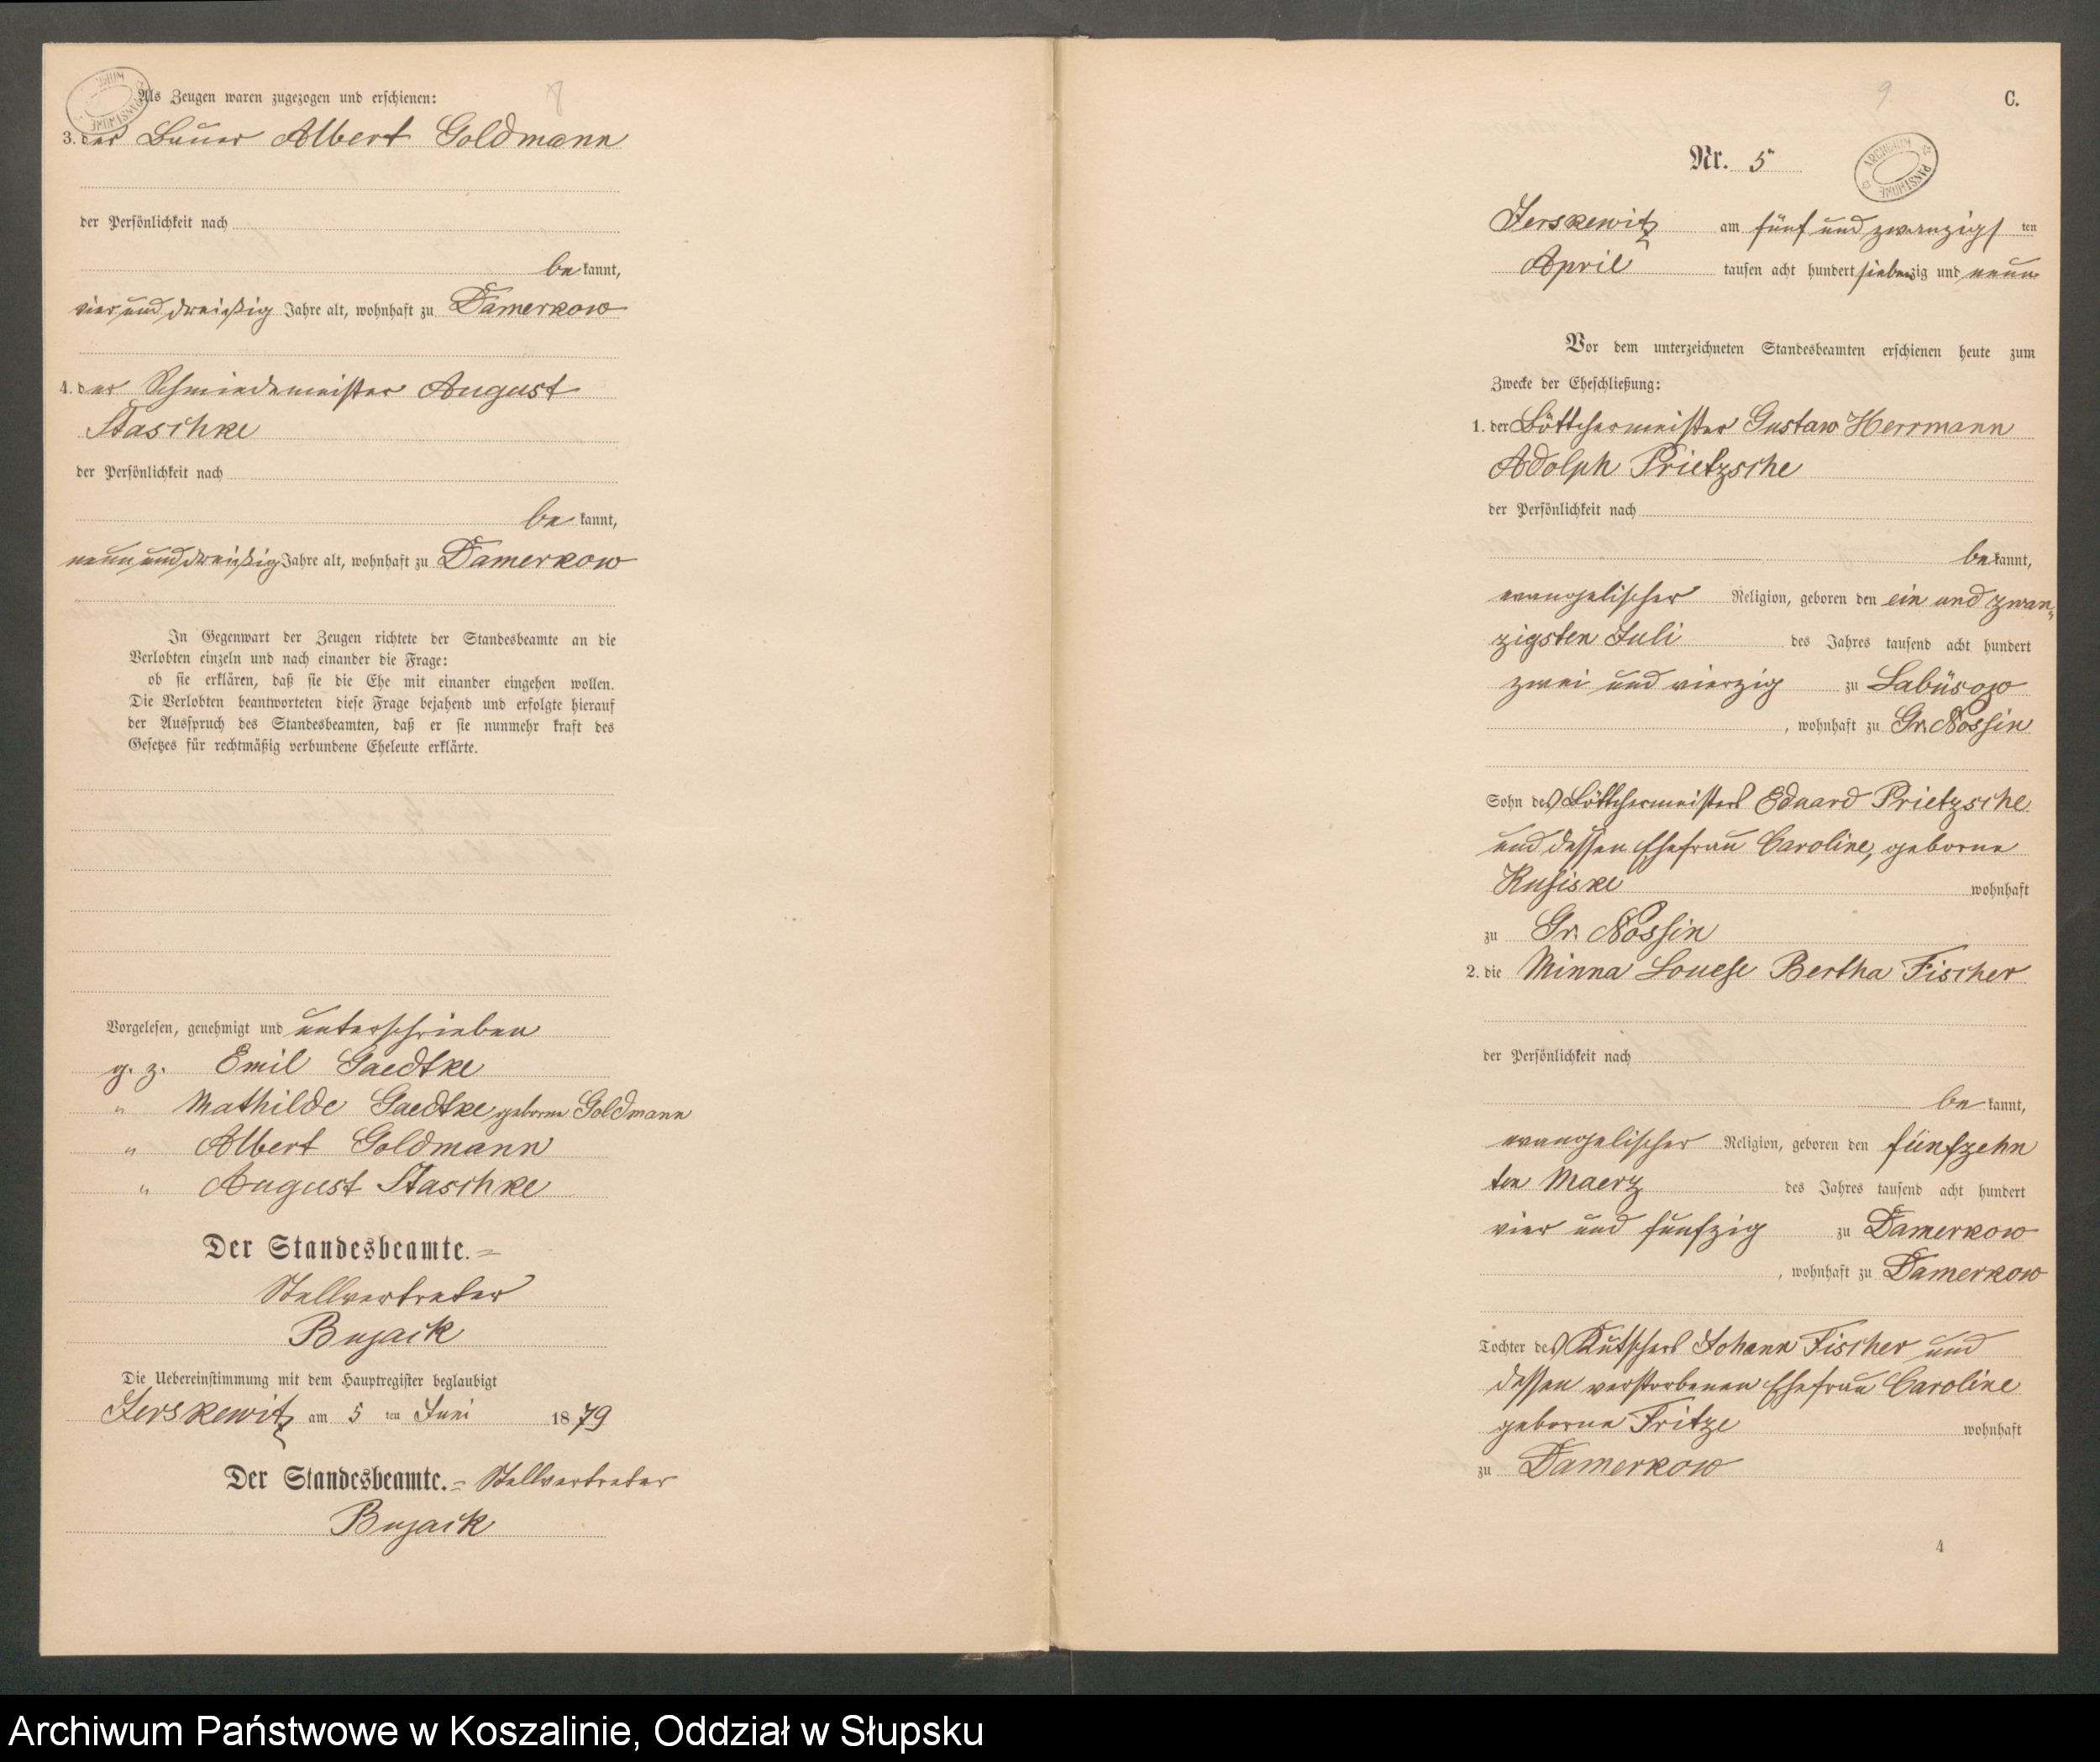 Als Zeugen waren zugezogen und erschienen:
8
3. der Bauer Albert Goldmann
der Persönlichkeit nach
be kannt,
vier und dreißig Jahre alt, wohnhaft zu Damerkow
4. der Schmiedemeister August
Staschke
der Persönlichkeit nach
be kannt,
neun und dreißig Jahre alt, wohnhaft zu Damerkow
In Gegenwart der Zeugen richtete der Standesbeamte an die
Verlobten einzeln und nach einander die Frage:
ob sie erklären, daß sie die Ehe mit einander eingehen wollen.
Die Verlobten beantworteten diese Frage bejahend und erfolgte hierauf
der Ausspruch des Standesbeamten, daß er sie nunmehr kraft des
Gesetzes für rechtmäßig verbundene Eheleute erklärte.
Vorgelesen, genehmigt und unterschrieben
g. z. Emil Gaedtke
" Mathilde Gaedtke geborne Goldmann
" Albert Goldmann
" August Staschke
Der Standesbeamte.=
Stellvertreter
Bujack
Die Uebereinstimmung mit dem Hauptregister beglaubigt
Jerskewitz am 5 ten Juni 1879
Der Standesbeamte.= Stellvertreter
Bujack
9
C.
Nr. 5
ARCHIWUM PAŃSTWOWE
Jerskewitz am fünf und zwanzigsten
April tausen acht hundert siebenzig und neun
Vor dem unterzeichneten Standesbeamten erschienen heute zum
Zwecke der Eheschließung:
1. der Böttchermeister Gustav Herrmann
Adolph Prietzsche
der Persönlichkeit nach
be kannt,
evangelischer Religion, geboren den ein und zwan-
zigsten Juli des Jahres tausend acht hundert
zwei und vierzig zu Labüsow
, wohnhaft zu Gr. Nossin
Sohn des Böttchermeisters Eduard Prietzsche
und dessen Ehefrau Caroline, geborne
wohnhaft
zu Gr. Nossin
2. die Minna Louese Bertha Fischer
der Persönlichkeit nach
be kannt,
evangelischer Religion, geboren den fünfzehn
ten Maerz des Jahres tausend acht hundert
vier und funfzig zu Damerkow
, wohnhaft zu Damerkow
Tochter des Kutschers Johann Fischer und
dessen verstorbenen Ehefrau Caroline
geborne Fritze wohnhaft
zu Damerkow
4
Archiwum Państwowe w Koszalinie, Oddział w Słupsku